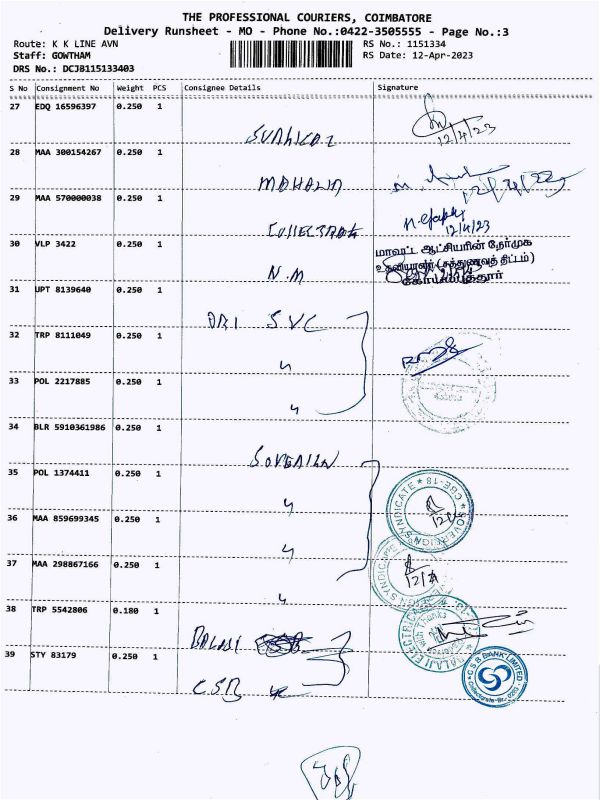 THE PROFESSIONAL COURIERS, COIMBATORE
Delivery Runsheet - MO - Phone No.:0422-3505555 - Page No.:3
Route: K K LINE AVN RS No.: 1151334
Staff: GOWTHAM RS Date: 12-Apr-2023
DRS No.: DCJB115133403
S No Consignment No Weight PCS Consignee Details Signature
27 EDQ 16596397 0.250 1
12/4/23
28 MAA 300154267 0.250 1
29 MAA 570000038 0.250 1
12/4/23
30 VLP 3422 0.250 1
N.M
மாவட்ட ஆட்சியரின் நேர்முக
உதவியாளர் (சத்துணவுத் திட்டம்)
கோயம்புத்தூர்
31 UPT 8139640 0.250 1
SVC
32 TRP 8111049 0.250 1
33 POL 2217885 0.250 1
34 BLR 5910361986 0.250 1
35 POL 1374411 0.250 1
SOVEREIGN SYNDICATE * CBE-18 *
36 MAA 859699345 0.250 1
37 MAA 298867166 0.250 1
12/4
38 TRP 5542806 0.180 1
BALAJI ELECTRICAL
With Thanks
39 STY 83179 0.250 1
CSB
CSB BANK LIMITED